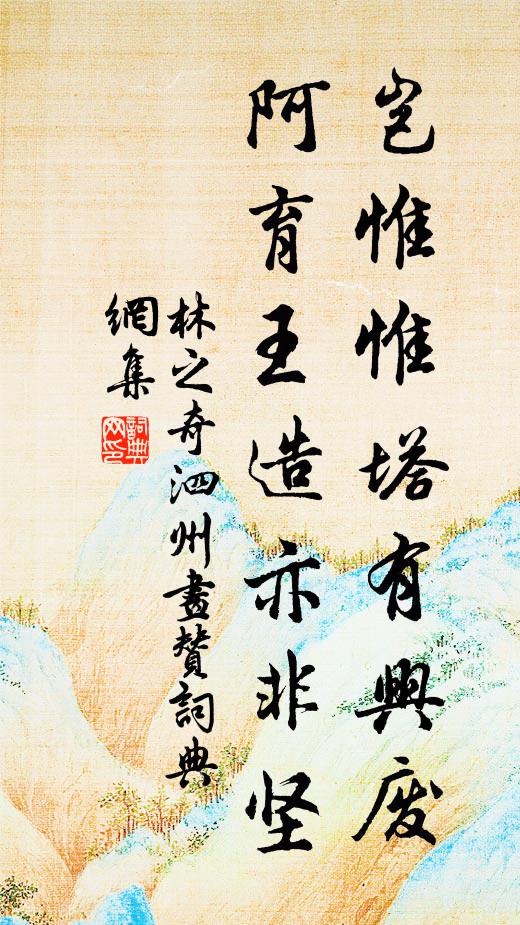 岂惟惟塔有興废
阿育王造亦非坚
林之奇泗州畫贊詞典
網集
詞典网印